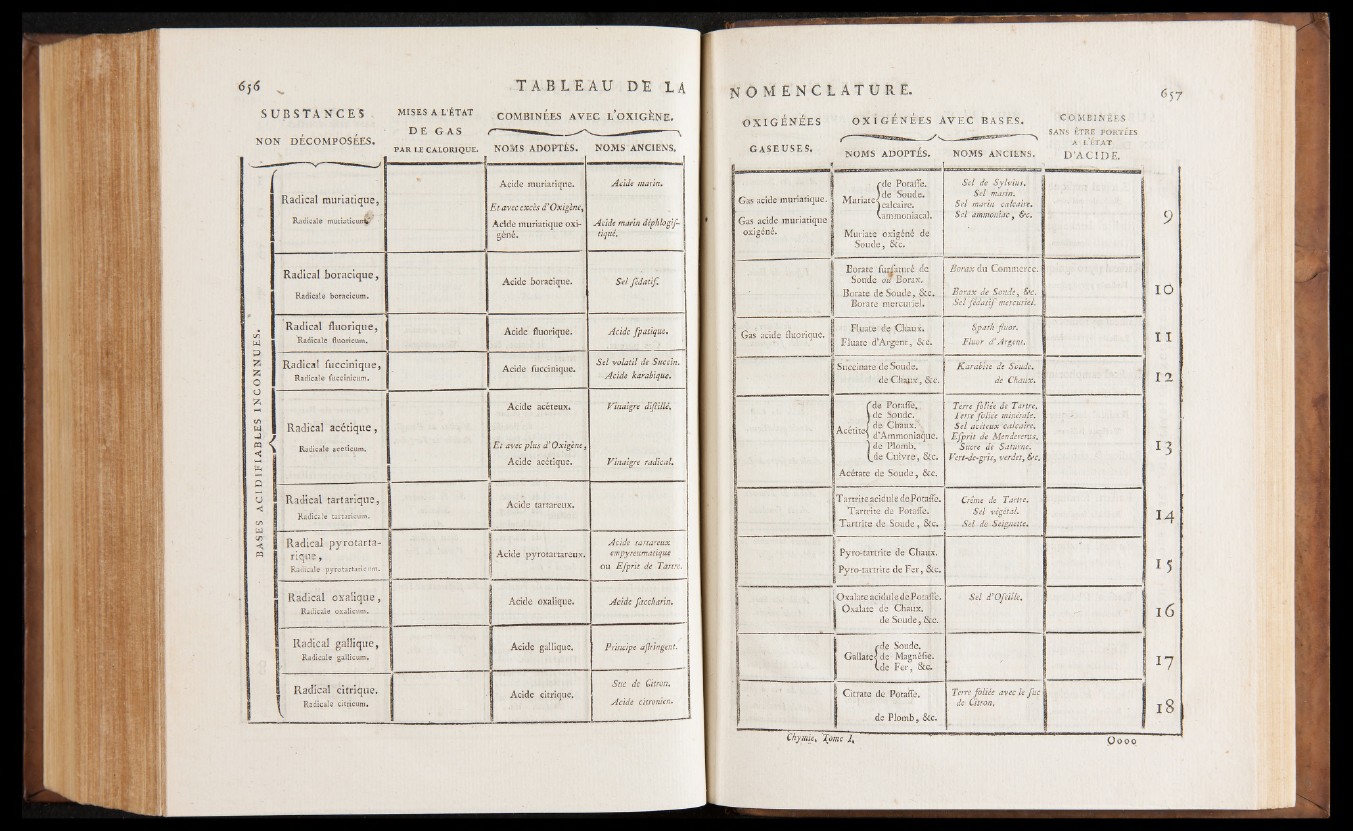 656
TABLEAU DE LA
SUBSTANCES
NON DÉCOMPOSÉES.
MISES A L'ÉTAT
DE GAS
PAR LE CALORIQUE.
COMBINÉES AVEC L'OXIGÈNE.
NOMS ADOPTÉS.
NOMS ANCIENS.
BASES ACIDIFIABLES INCONNUES.
Radical muriatique,
Radicale muriaticum.
Acide muriatique.
Et avec excès d'Oxigène,
Acide muriatique oxi-
géné.
Acide marin.
Acide marin déphlogis-
tiqué.
Radical boracique,
Radicale boracicum.
Acide boracique.
Sel sédatif.
Radical fluorique,
Radicale fluoricum.
Acide fluorique.
Acide spatique.
Radical succinique,
Radicale succinicum.
Acide succinique.
Sel volatil de Succin.
Acide karabique.
Radical acétique,
Radicale aceticum.
Acide acéteux.
Et avec plus d'Oxigène,
Acide acétique.
Vinaigre distillé.
Vinaigre radical.
Radical tartarique,
Radicale tartaricum.
Acide tartareux.
Radical pyrotarta-
rique,
Radicale pyrotartaricum.
Acide pyrotartareux.
Acide tartareux
empyreumatique
ou Esprit de Tartre.
Radical oxalique,
Radicale oxalicum.
Acide oxalique.
Acide saccharin.
Radical gallique,
Radicale gallicum.
Acide gallique.
Principe astringent.
Radical citrique.
Radicale citricum.
Acide citrique.
Suc de Citron.
Acide citronien.
NOMENCLATURE.
657
OXIGÉNÉES
GASEUSES.
OXIGÉNÉES AVEC BASES.
NOMS ADOPTÉS.
NOMS ANCIENS.
COMBINÉES
SANS ÊTRE PORTÉES
A L'ÉTAT
D'ACIDE.
Gas acide muriatique.
Gas acide muriatique
oxigéné.
Muriate
de Potasse.
de Soude.
calcaire.
ammoniacal.
Muriate oxigéné de
Soude, &c.
Sel de Sylvius.
Sel marin.
Sel marin calcaire.
Sel ammoniac, &c.
9
Borate sursaturé de
Soude ou Borax.
Borate de Soude, &c.
Borate mercuriel.
Borax du Commerce.
Borax de Soude, &c.
Sel sédatif mercuriel.
10
Gas acide fluorique.
Fluate de Chaux.
Fluate d'Argent, &c.
Spath fluor.
Fluor d'Argent.
11
Succinate de Soude.
de Chaux, &c.
Karabite de Soude.
de Chaux.
12
Acétite
de Potasse.
de Soude.
de Chaux.
d'Ammoniaque.
de Plomb.
de Cuivre, &c.
Acétate de Soude, &c.
Terre foliée de Tartre.
Terre foliée minérale.
Sel acéteux calcaire.
Esprit de Mendererus.
Sucre de Saturne.
Vert-de-gris, verdet, &c.
13
Tartrite acidule de Potasse.
Tartrite de Potasse.
Tartrite de Soude, &c.
Crème de Tartre.
Sel végétal.
Sel de Seignette.
14
Pyro-tartrite de Chaux.
Pyro-tartrite de Fer, &c.
15
Oxalate acidule de Potasse.
Oxalate de Chaux.
de Soude, &c.
Sel d'Oseille.
16
Gallate
de Soude.
de Magnésie.
de Fer, &c.
17
Citrate de Potasse.
de Plomb, &c.
Terre foliée avec le suc
de Citron.
18
Chymie. Tome I.
Oooo